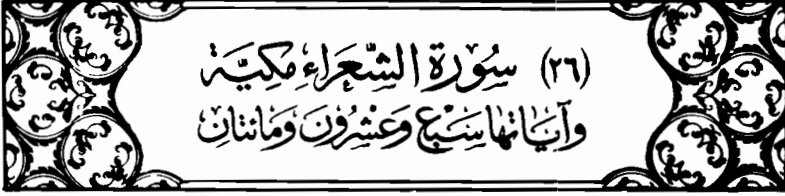 (٢٦) سُورَة الشُّعَرَاءِ مَكِيَّة
وَآيَاتهَا سَبْع وَعِشْرُونَ وَمَائتَان